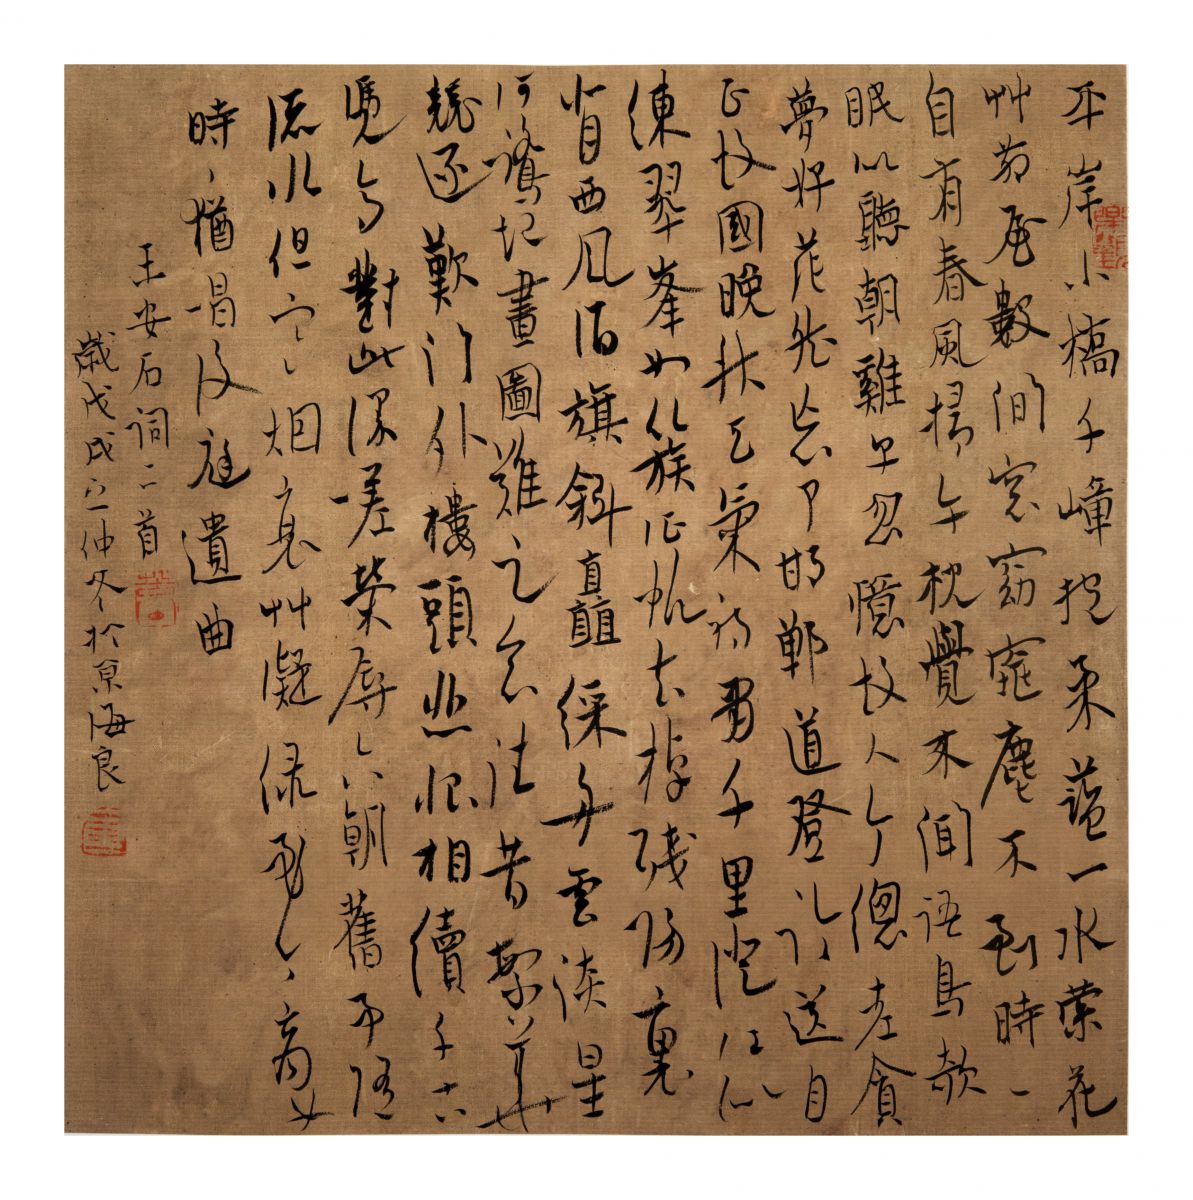 平岸小橋千嶂抱柔藍一水縈花
艸茅屋數間窓窈窕塵不到時〻
自有春風掃午枕覺来聞語鳥欹
眠似聽朝雞早忽憶故人今總老貪
夢好茫然忘了邯鄲道登臨送目
正故國晚秋天氣初肅千里澄江似
練翠峯如簇征帆去棹殘陽裏
背西風酒旗斜矗綵舟雲淡星
河鷺起畫圖難足念往昔繁華
競逐歎門外樓頭悲恨相續千古
凭高對此謾嗟榮辱六朝舊事隨
流水但寒烟衰艸凝緑至今商女
時〻猶唱後庭遺曲
王安石詞二首
歲戊戌之仲冬於京海良